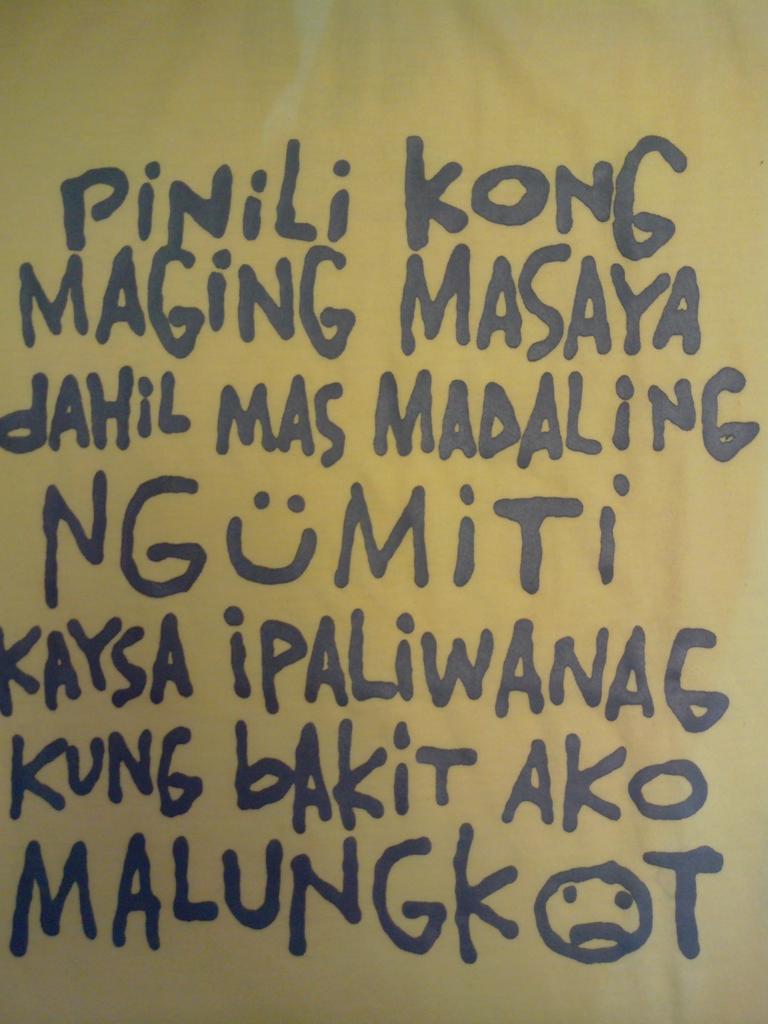 PiNiLi KONG
MAGiNG MASAYA
dAHiL MAS MADALiNG
NGÜMiTi
KAYSA iPALiWANAG
KUNG bAKiT AKO
MALUNGKOT